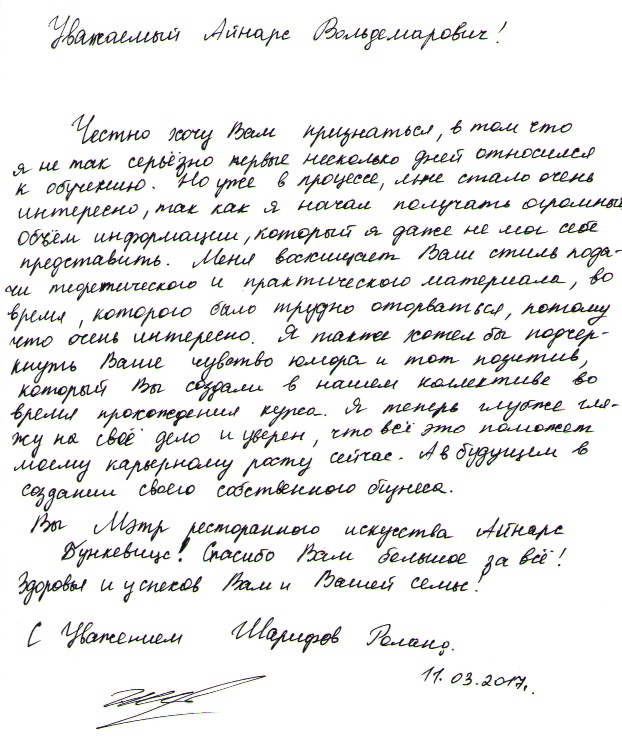 Уважаемый Айнарс Вольдемарович!
Честно хочу Вам признаться, в том что
я не так серьёзно первые несколько дней относился
к обучению. Но уже в процессе, мне стало очень
интересно, так как я начал получать огромный
объём информации, который я даже не мог себе
представить. Меня восхищает Ваш стиль пода-
чи теоретического и практического материала, во
время, которого было трудно оторваться, потому
что очень интересно. Я также хотел бы подчер-
кнуть Ваше чувство юмора и тот позитив,
который Вы создали в нашем коллективе во
время прохождения курса. Я теперь глубже гля-
жу на своё дело и уверен, что всё это поможет
моему карьерному росту сейчас. А в будущем в
создании своего собственного бизнеса.
Вы Мэтр ресторанного искусства Айнарс
Бункевицс! Спасибо Вам большое за всё!
Здоровья и успехов Вам и Вашей семье!
С Уважением Шарифов Роланд.
11.03.2017г.